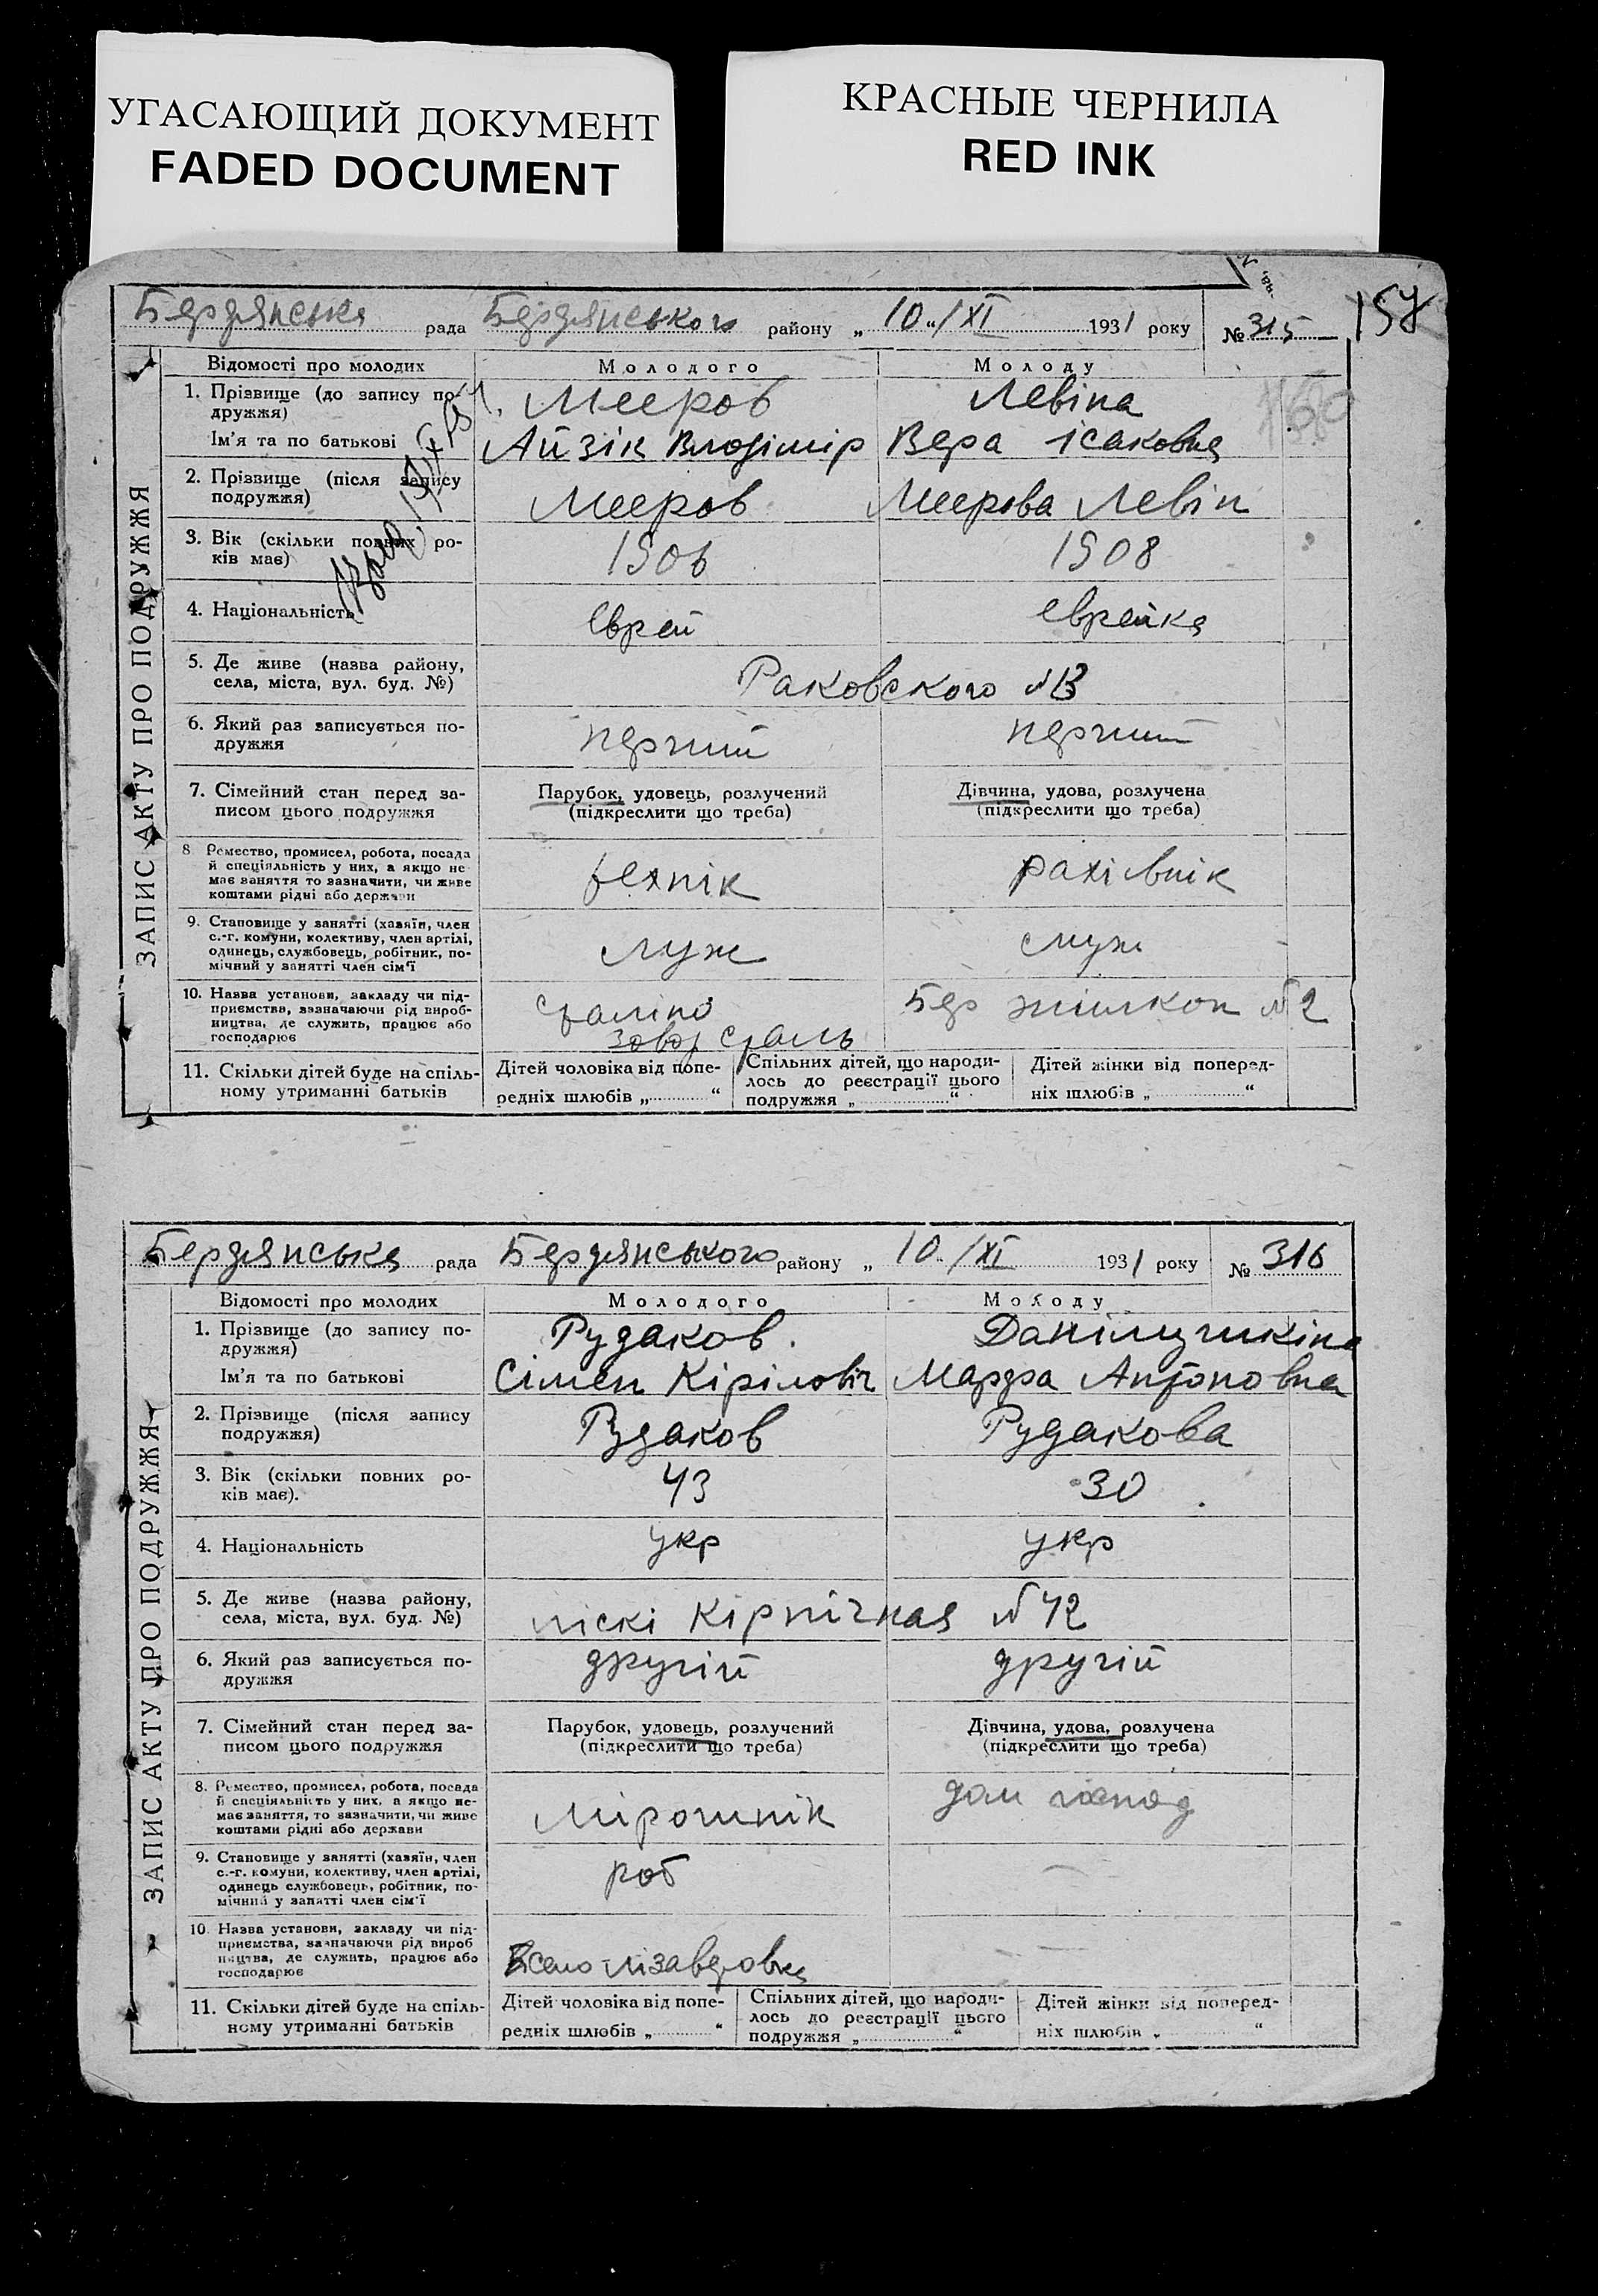 УГАСАЮЩИЙ ДОКУМЕНТ
FADED DOCUMENT
КРАСНЫЕ ЧЕРНИЛА
RED INK
157
Бердянська рада Бердянського району „ 10 “ / XI 1931 року № 315
ЗАПИС АКТУ ПРО ПОДРУЖЖЯ
Відомості про молодих Молодого Молоду
1. Прізвище (до запису по- Мееров Левіна
дружжя)
Ім'я та по батькові Айзік Владімір Вера Ісаковна
2. Прізвище (після запису Мееров Меерова Левін
подружжя)
3. Вік (скільки повних ро- 1906 1908
ків має)
4. Національність Еврей еврейка
5. Де живе (назва району,
села, міста, вул. буд. №) Раковского №
6. Який раз записується по- перший перший
дружжя
7. Сімейний стан перед за- Парубок, удовець, розлучений Дівчина, удова, розлучена
писом цього подружжя (підкреслити що треба) (підкреслити що треба)
8 Ремество, промисел, робота, посада
й спеціяльність у них, а якщо не
має заняття то зазначити, чи живе технік рахівнік
коштами рідні або держави
9. Становище у занятті (хазяїн, член
с.-г. комуни, колективу, член артілі,
одинець, службовець, робітник, по- служ служ
мічний у занятті член сім'ї
10. Назва установи, закладу чи під- Сталіно Бер житлкоп № 2
приємства, зазначаючи рід вироб-
ництва, де служить, працює або завод сталь
господарює
11. Скільки дітей буде на спіль- Дітей чоловіка від попе- Спільних дітей, що народи- Дітей жінки від поперед-
ному утриманні батьків редніх шлюбів „ “ лось до реєстрації цього ніх шлюбів „ “
подружжя „ “
Бердянська рада Бердянського району „ 10 / XI 1931 року № 316
ЗАПИС АКТУ ПРО ПОДРУЖЖЯ
Відомості про молодих Молодого Молоду
1. Прізвище (до запису по- Рудаков Данілушкіна
дружжя)
Ім'я та по батькові Сімен Кірілович Марфа Антоновна
2. Прізвище (після запису Рудаков Рудакова
подружжя)
3. Вік (скільки повних ро- 43 30
ків має).
4. Національність укр укр
5. Де живе (назва району,
села, міста, вул. буд. №) піскі Кірпічная № 42
6. Який раз записується по- другій другій
дружжя
7. Сімейний стан перед за- Парубок, удовець, розлучений Дівчина, удова, розлучена
писом цього подружжя (підкреслити що треба) (підкреслити що треба)
8. Ремество, промисел, робота, посада дом господ
й спеціяльність у них, а якщо не-
має заняття, то зазначити, чи живе мірошнік
коштами рідні або держави
9. Становище у занятті (хазяїн, член
с.-г. комуни, колективу, член артілі, роб
одинець службовець, робітник, по-
мічний у занятті член сім'ї
10. Назва установи, закладу чи під-
приємства, зазначаючи рід вироб
ництва, де служить, працює або село лізаветовка
господарює
11. Скільки дітей буде на спіль- Дітей чоловіка від попе- Спільних дітей, що народи- Дітей жінки від поперед-
ному утриманні батьків редніх шлюбів „ “ лось до реєстрації цього ніх шлюбів „ “
подружжя „ “